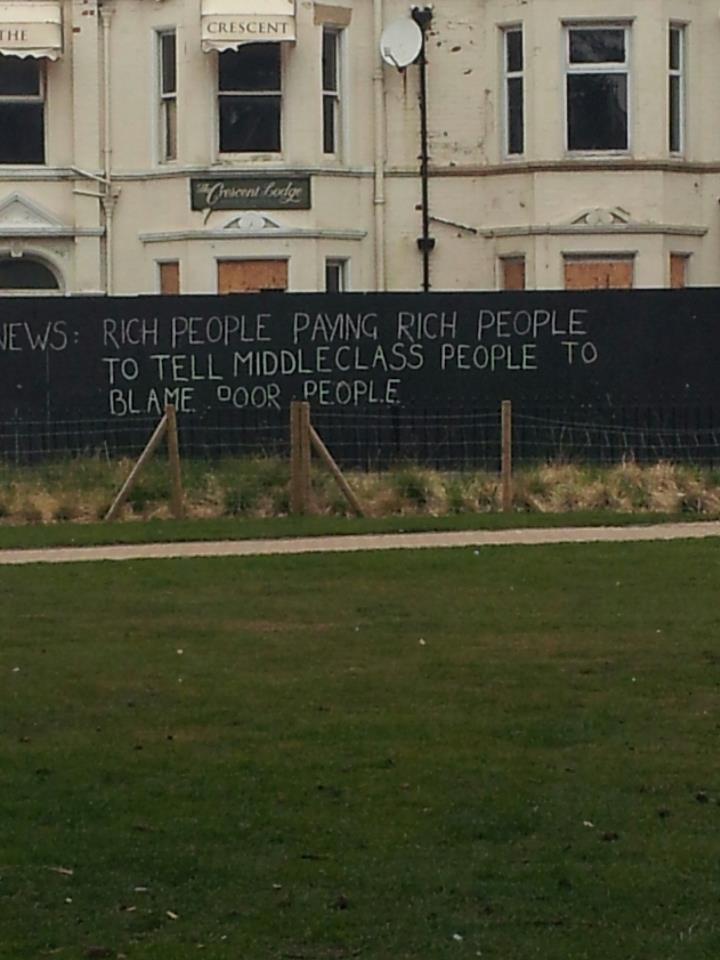 THE
CRESCENT
The Crescent Lodge
NEWS: RICH PEOPLE PAYING RICH PEOPLE
TO TELL MIDDLECLASS PEOPLE TO
BLAME POOR PEOPLE